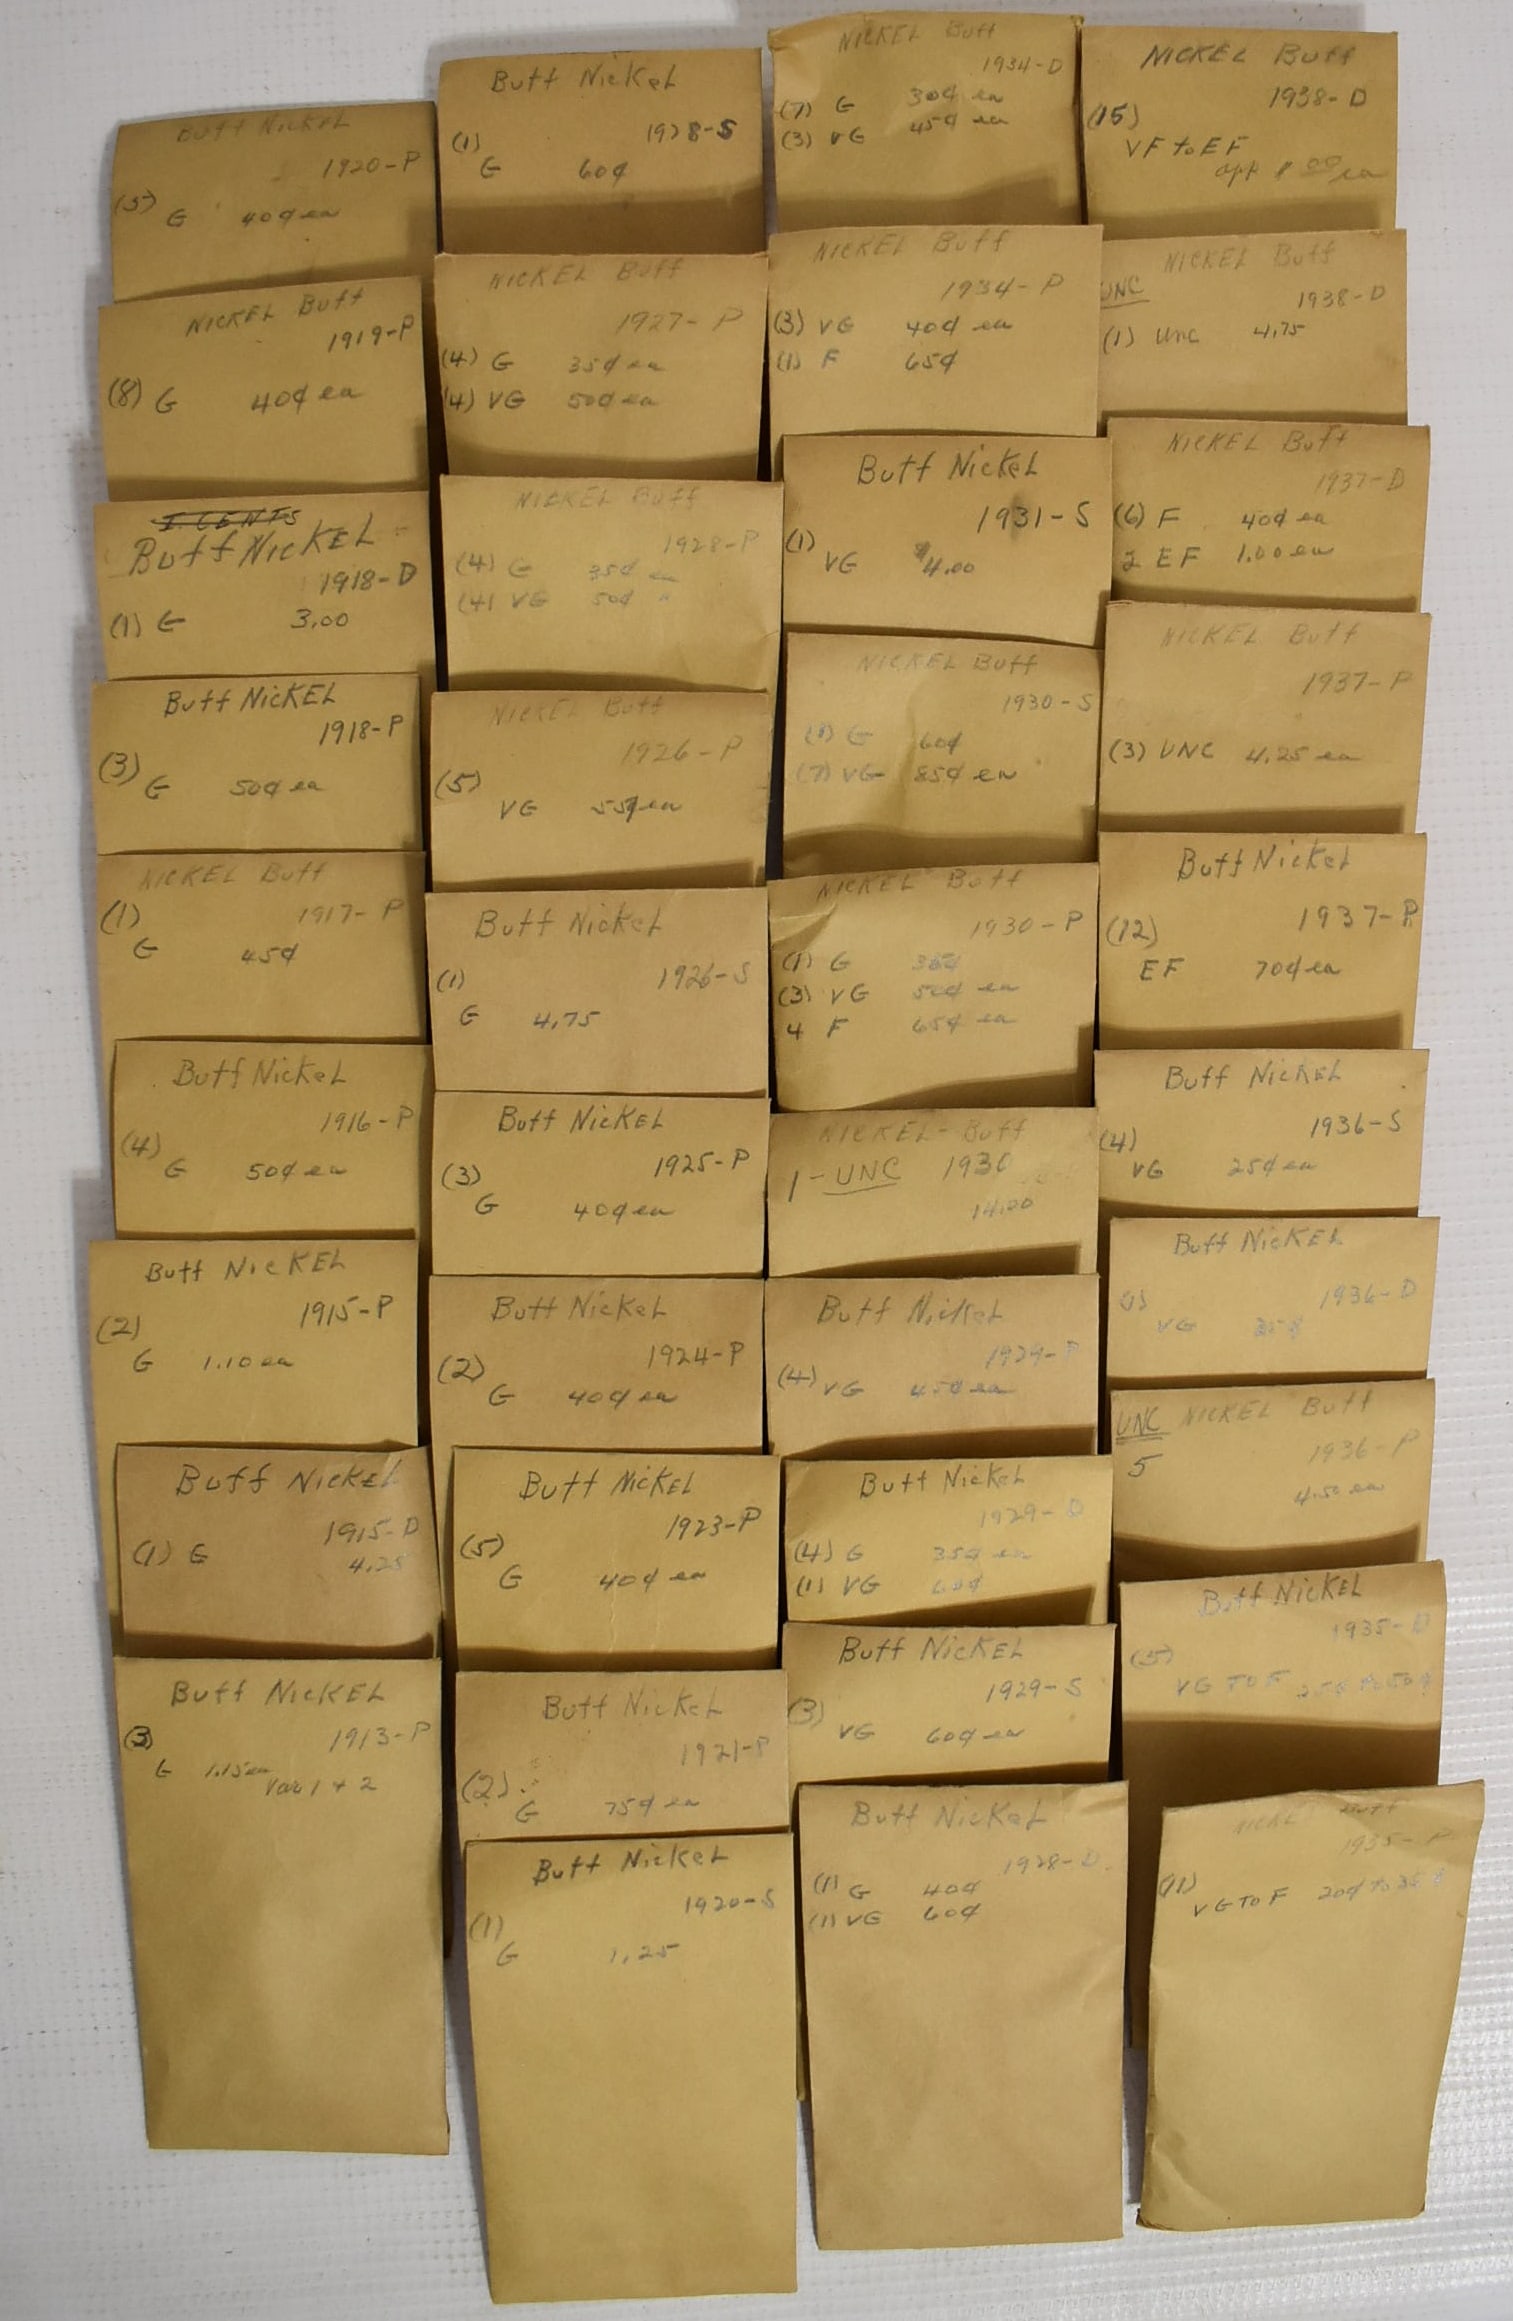 Buff Nickel
1920-P
(5)
G 40¢ ea
NICKEL Buff
1919-P
(8) G 40¢ ea
I. CENTS
Buff NICKEL
1918-D
(1) G 3.00
Buff NICKEL
1918-P
(3)
G 50¢ ea
NICKEL Buff
1917-P
(1)
G 45¢
Buff Nickel
1916-P
(4)
G 50¢ ea
Buff NICKEL
1915-P
(2)
G 1.10 ea
Buff NICKEL
1915-D
(1) G 4.25
Buff NICKEL
1913-P
(3)
G 1.15 ea
Var 1 + 2
Buff Nickel
(1) 1928-S
G 60¢
NICKEL Buff
1927-P
(4) G 35¢ ea
(4) VG 50¢ ea
NICKEL Buff
1928-P
(4) G 35¢ ea
(4) VG 50¢ "
NICKEL Buff
1926-P
(5)
VG 55¢ ea
Buff Nickel
(1) 1926-S
G 4.75
Buff NICKEL
1925-P
(3)
G 40¢ ea
Buff Nickel
1924-P
(2)
G 40¢ ea
Buff NICKEL
1923-P
(5)
G 40¢ ea
Buff Nickel
1921-P
(2)
G 75¢ ea
Buff Nickel
1920-S
(1)
G 1.25
NICKEL Buff
1934-D
(7) G 30¢ ea
(3) VG 45¢ ea
NICKEL Buff
1934-P
(3) VG 40¢ ea
(1) F 65¢
Buff Nickel
1931-S
(1)
VG $4.00
NICKEL Buff
1930-S
G 60¢
(7) VG 85¢ ea
NICKEL Buff
1930-P
(1) G
(3) VG 50¢ ea
4 F 65¢ ea
NICKEL-Buff
1-UNC 1930
14.20
Buff Nickel
1929-P
(4) VG 45¢ ea
Buff Nickel
1929-D
(4) G 35¢ ea
(1) VG 60¢
Buff NICKEL
1929-S
(3)
VG 60¢ ea
Buff Nickel
1928-D
(1) G 40¢
(1) VG 60¢
NICKEL Buff
1938-D
(15)
VF to EF
app 1.00 ea
NICKEL Buff
UNC 1938-D
(1) Unc 4.75
NICKEL Buff
1937-D
(6) F 40¢ ea
2 EF 1.00 ea
NICKEL Buff
1937-P
(3) UNC 4.25 ea
Buff Nickel
1937-P
(12)
EF 70¢ ea
Buff NICKEL
1936-S
(4)
VG 25¢ ea
Buff NICKEL
1936-D
(1)
VG 35¢
UNC NICKEL Buff
5 1936-P
4.50 ea
Buff NICKEL
1935-D
(5)
VG TO F 25¢ to 50¢
NICKEL Buff
1935-P
(11)
VG TO F 20¢ to 35¢